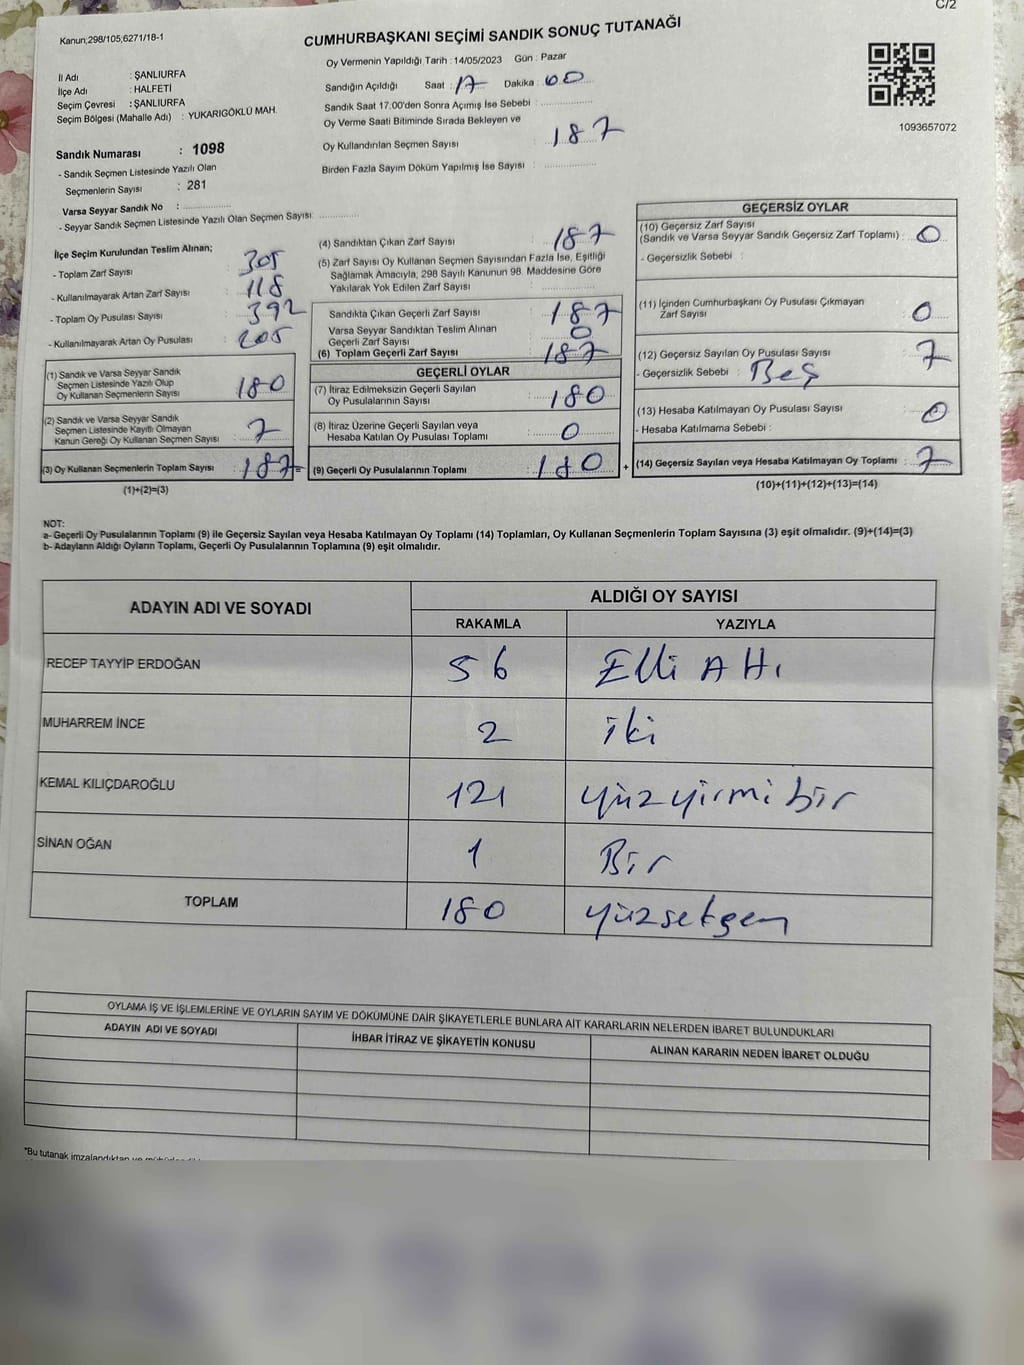 C/2
Kanun;298/105,6271/18-1
CUMHURBAŞKANI SEÇİMİ SANDIK SONUÇ TUTANAĞI
Oy Vermenin Yapıldığı Tarih : 14/05/2023 Gün : Pazar
İl Adı : ŞANLIURFA
İlçe Adı : HALFETİ
Seçim Çevresi : ŞANLIURFA
Seçim Bölgesi (Mahalle Adı) : YUKARIGÖKLÜ MAH.
Sandığın Açıldığı Saat : 17 Dakika : 00
Sandık Saat 17:00'den Sonra Açımış İse Sebebi :
Oy Verme Saati Bitiminde Sırada Bekleyen ve
Oy Kullandırılan Seçmen Sayısı : 187
Birden Fazla Sayım Döküm Yapılmış İse Sayısı :
1093657072
Sandık Numarası : 1098
- Sandık Seçmen Listesinde Yazılı Olan
Seçmenlerin Sayısı : 281
Varsa Seyyar Sandık No :
- Seyyar Sandık Seçmen Listesinde Yazılı Olan Seçmen Sayısı :
İlçe Seçim Kurulundan Teslim Alınan;
- Toplam Zarf Sayısı : 305
- Kullanılmayarak Artan Zarf Sayısı : 118
- Toplam Oy Pusulası Sayısı : 392
- Kullanılmayarak Artan Oy Pusulası : 205
(1) Sandık ve Varsa Seyyar Sandık
Seçmen Listesinde Yazılı Olup
Oy Kullanan Seçmenlerin Sayısı : 180
(2) Sandık ve Varsa Seyyar Sandık
Seçmen Listesinde Kayıtlı Olmayan
Kanun Gereği Oy Kullanan Seçmen Sayısı : 7
(3) Oy Kullanan Seçmenlerin Toplam Sayısı : 187 =
(1)+(2)=(3)
(4) Sandıktan Çıkan Zarf Sayısı : 187
(5) Zarf Sayısı Oy Kullanan Seçmen Sayısından Fazla İse, Eşitliği
Sağlamak Amacıyla, 298 Sayılı Kanunun 98. Maddesine Göre
Yakılarak Yok Edilen Zarf Sayısı :
Sandıkta Çıkan Geçerli Zarf Sayısı : 187
Varsa Seyyar Sandıktan Teslim Alınan
Geçerli Zarf Sayısı : 0
(6) Toplam Geçerli Zarf Sayısı : 187
GEÇERLİ OYLAR
(7) İtiraz Edilmeksizin Geçerli Sayılan
Oy Pusulalarının Sayısı : 180
(8) İtiraz Üzerine Geçerli Sayılan veya
Hesaba Katılan Oy Pusulası Toplamı : 0
(9) Geçerli Oy Pusulalarının Toplamı : 180 +
GEÇERSİZ OYLAR
(10) Geçersiz Zarf Sayısı
(Sandık ve Varsa Seyyar Sandık Geçersiz Zarf Toplamı) : 0
- Geçersizlik Sebebi :
(11) İçinden Cumhurbaşkanı Oy Pusulası Çıkmayan
Zarf Sayısı : 0
(12) Geçersiz Sayılan Oy Pusulası Sayısı : 7
- Geçersizlik Sebebi : Beş
(13) Hesaba Katılmayan Oy Pusulası Sayısı : 0
- Hesaba Katılmama Sebebi :
(14) Geçersiz Sayılan veya Hesaba Katılmayan Oy Toplamı : 7
(10)+(11)+(12)+(13)=(14)
NOT:
a- Geçerli Oy Pusulalarının Toplamı (9) ile Geçersiz Sayılan veya Hesaba Katılmayan Oy Toplamı (14) Toplamları, Oy Kullanan Seçmenlerin Toplam Sayısına (3) eşit olmalıdır. (9)+(14)=(3)
b- Adayların Aldığı Oyların Toplamı, Geçerli Oy Pusulalarının Toplamına (9) eşit olmalıdır.
ADAYIN ADI VE SOYADI
ALDIĞI OY SAYISI
RAKAMLA YAZIYLA
RECEP TAYYİP ERDOĞAN 56 Elli Altı
MUHARREM İNCE 2 iki
KEMAL KILIÇDAROĞLU 121 yüzyirmi bir
SİNAN OĞAN 1 Bir
TOPLAM 180 yüzsekçen
OYLAMA İŞ VE İŞLEMLERİNE VE OYLARIN SAYIM VE DÖKÜMÜNE DAİR ŞİKAYETLERLE BUNLARA AİT KARARLARIN NELERDEN İBARET BULUNDUKLARI
ADAYIN ADI VE SOYADI İHBAR İTİRAZ VE ŞİKAYETİN KONUSU ALINAN KARARIN NEDEN İBARET OLDUĞU
*Bu tutanak imzalandıktan ve